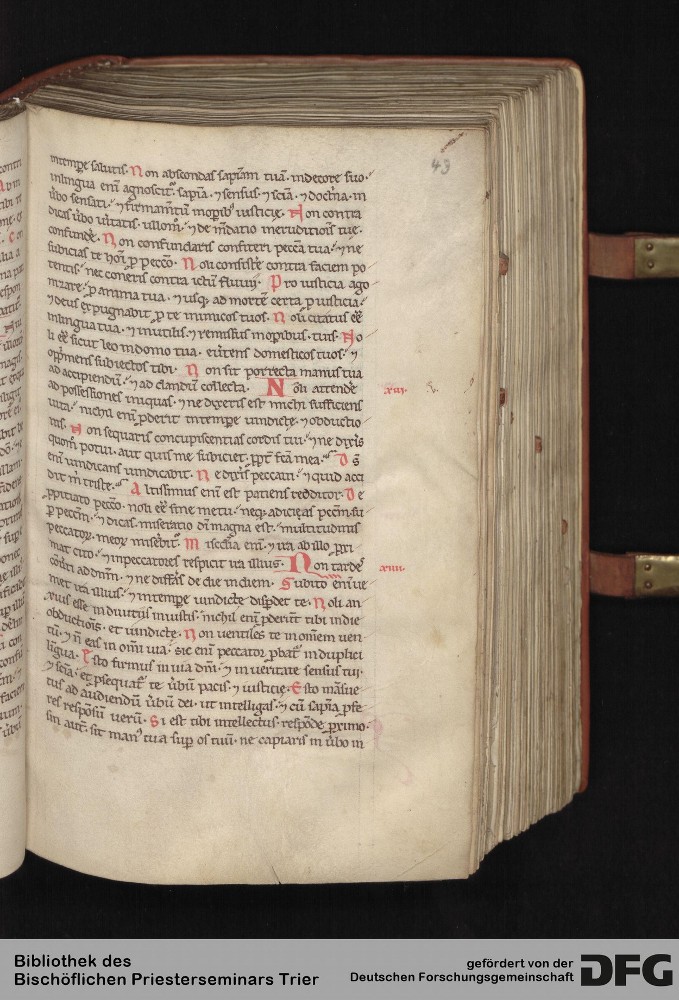 43
intempe salutis. Non abscondas sapiam tuā. indecore suo.
inlingua eni agnoscit. sapia. ⁊ sensus. ⁊ scia. ⁊ doct'na. in
ūbo sensati. ⁊ firmamtū mopib; iusticie. Non contra
dicas ūbo ūitatis. ullom. ⁊ de mdatio ineruditiois tue.
confunde. Non confundaris confiteri peccata tua. ⁊ ne
subicias te hoi p peccō. Noli consiste contra faciem po
tentis. nec coneris contra ictū fluuii. Pro iusticia ago
nizare. p anima tua. ⁊ usq; ad morte certa p iusticia.
⁊ deus expugnabit p te inimicos tuos. Noli citatus eē
inlingua tua. ⁊ inutilis. ⁊ remissus in opibus. tuis. No
li eē sicut leo in domo tua. eūtens domesticos tuos. ⁊
opprimens subiectos tibi. Non sit porrecta manus tua
ad accipiendū. ⁊ ad dandū collecta. Noli attende
xiii.
ad possessiones iniquas. ⁊ ne dixeris est michi sufficiens
uita. nichil eni pderit intempe uindicte. ⁊ obductio
nis. Non sequaris concupiscentias cordis tui. ⁊ ne dixis
quom potui. aut quis me subiciet. ppt fca mea. Ds
eni uindicans uindicabit. Ne dixis peccaui. ⁊ quid acci
dit m triste. Altissimus eni est patiens redditor. De
ppitiato peccō. noli eē sine metu. neq; adicias pecm su
p pecm. ⁊ dicas. miseratio dni magna est. multitudinis
peccator. meor misebit. Misedia eni. ⁊ ira ab illo pxi
mat cito. ⁊ in peccatores respicit ira illius. Non tarde
xiiii.
conti ad dnm. ⁊ ne diffas de die in diem. Subito eni ue
niet ira illius. ⁊ in tempe uindicte dispdet te. Noli an
xius esse in diuitiis iniustis. nichil eni pderūt tibi in die
obductiois. et uindicte. Non uentiles te in omem uen
tū. ⁊ n eas in omi uia. sic eni peccator pbat in duplici
ligua. Esto firmus in uia dni. ⁊ in ueritate sensus tui.
⁊ scia. et psequat te ūbū pacis. ⁊ iusticie. Esto māsue
tus ad audiendū ūbū dei. ut intelligas. ⁊ cū sapia pfe
res respōsū uerū. Si est tibi intellectus. respōde pximo.
sin aut. sit man' tua sup os tuū. ne capiaris in ūbo in
Bibliothek des
Bischöflichen Priesterseminars Trier
gefördert von der
Deutschen Forschungsgemeinschaft
DFG